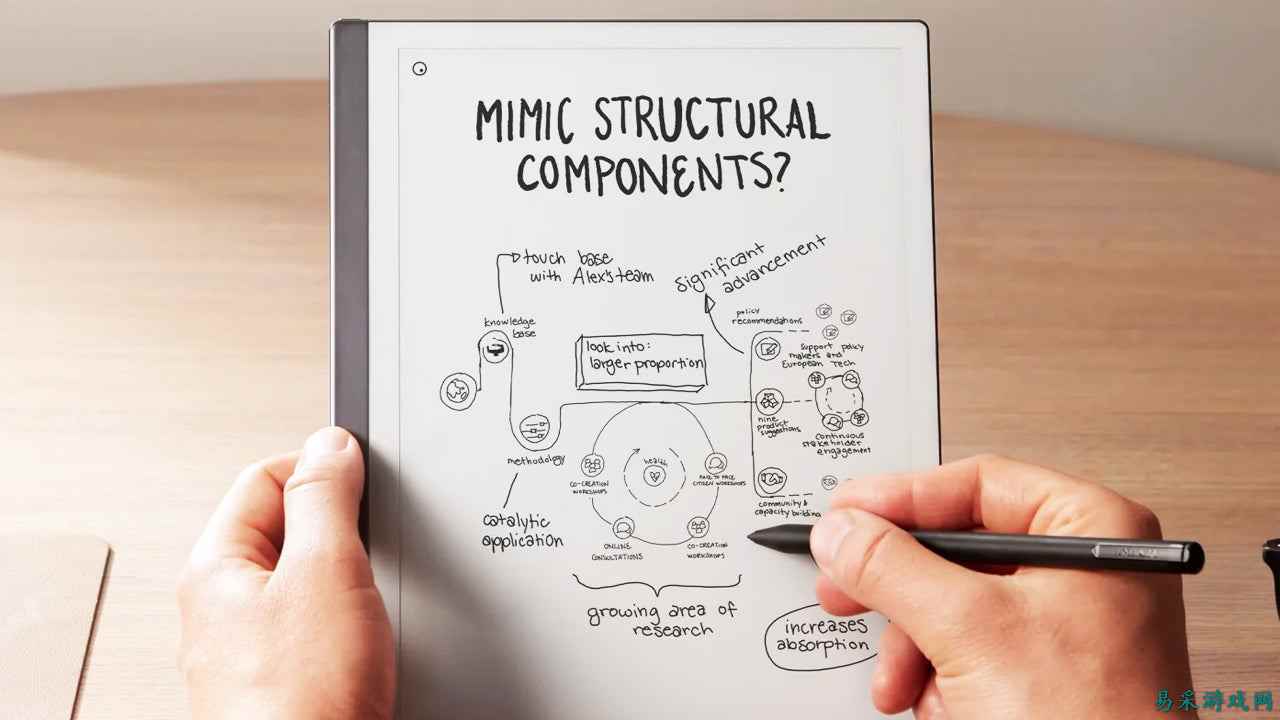 MIMIC STRUCTURAL
COMPONENTS?
touch base
with Alex's team
significant
advancement
knowledge
base
look into:
larger proportion
policy
recommendations
support policy
makers and
European Tech
nine
product
suggestions
continuous
stakeholder
engagement
methodology
health
CO-CREATION
WORKSHOPS
FACE TO FACE
CITIZEN WORKSHOPS
community &
capacity building
catalytic
application
ONLINE
CONSULTATIONS
CO-CREATION
WORKSHOPS
growing area of
research
increases
absorption
易采游戏网